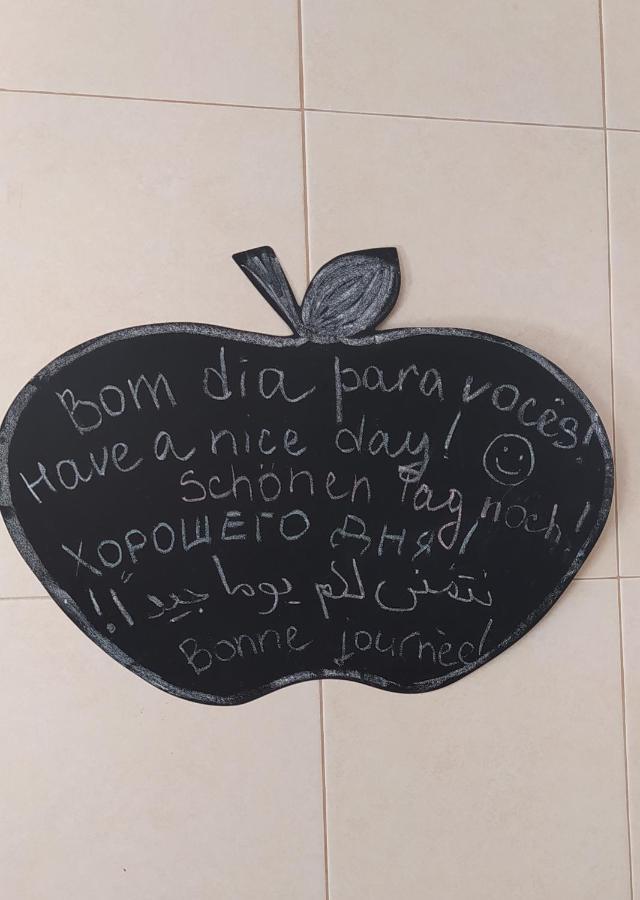 Bom dia para vocês!
Have a nice day!
schönen Tag noch!
ХОРОШЕГО ДНЯ!
نتمنى لكم يوما جيدا!!
Bonne journèe!